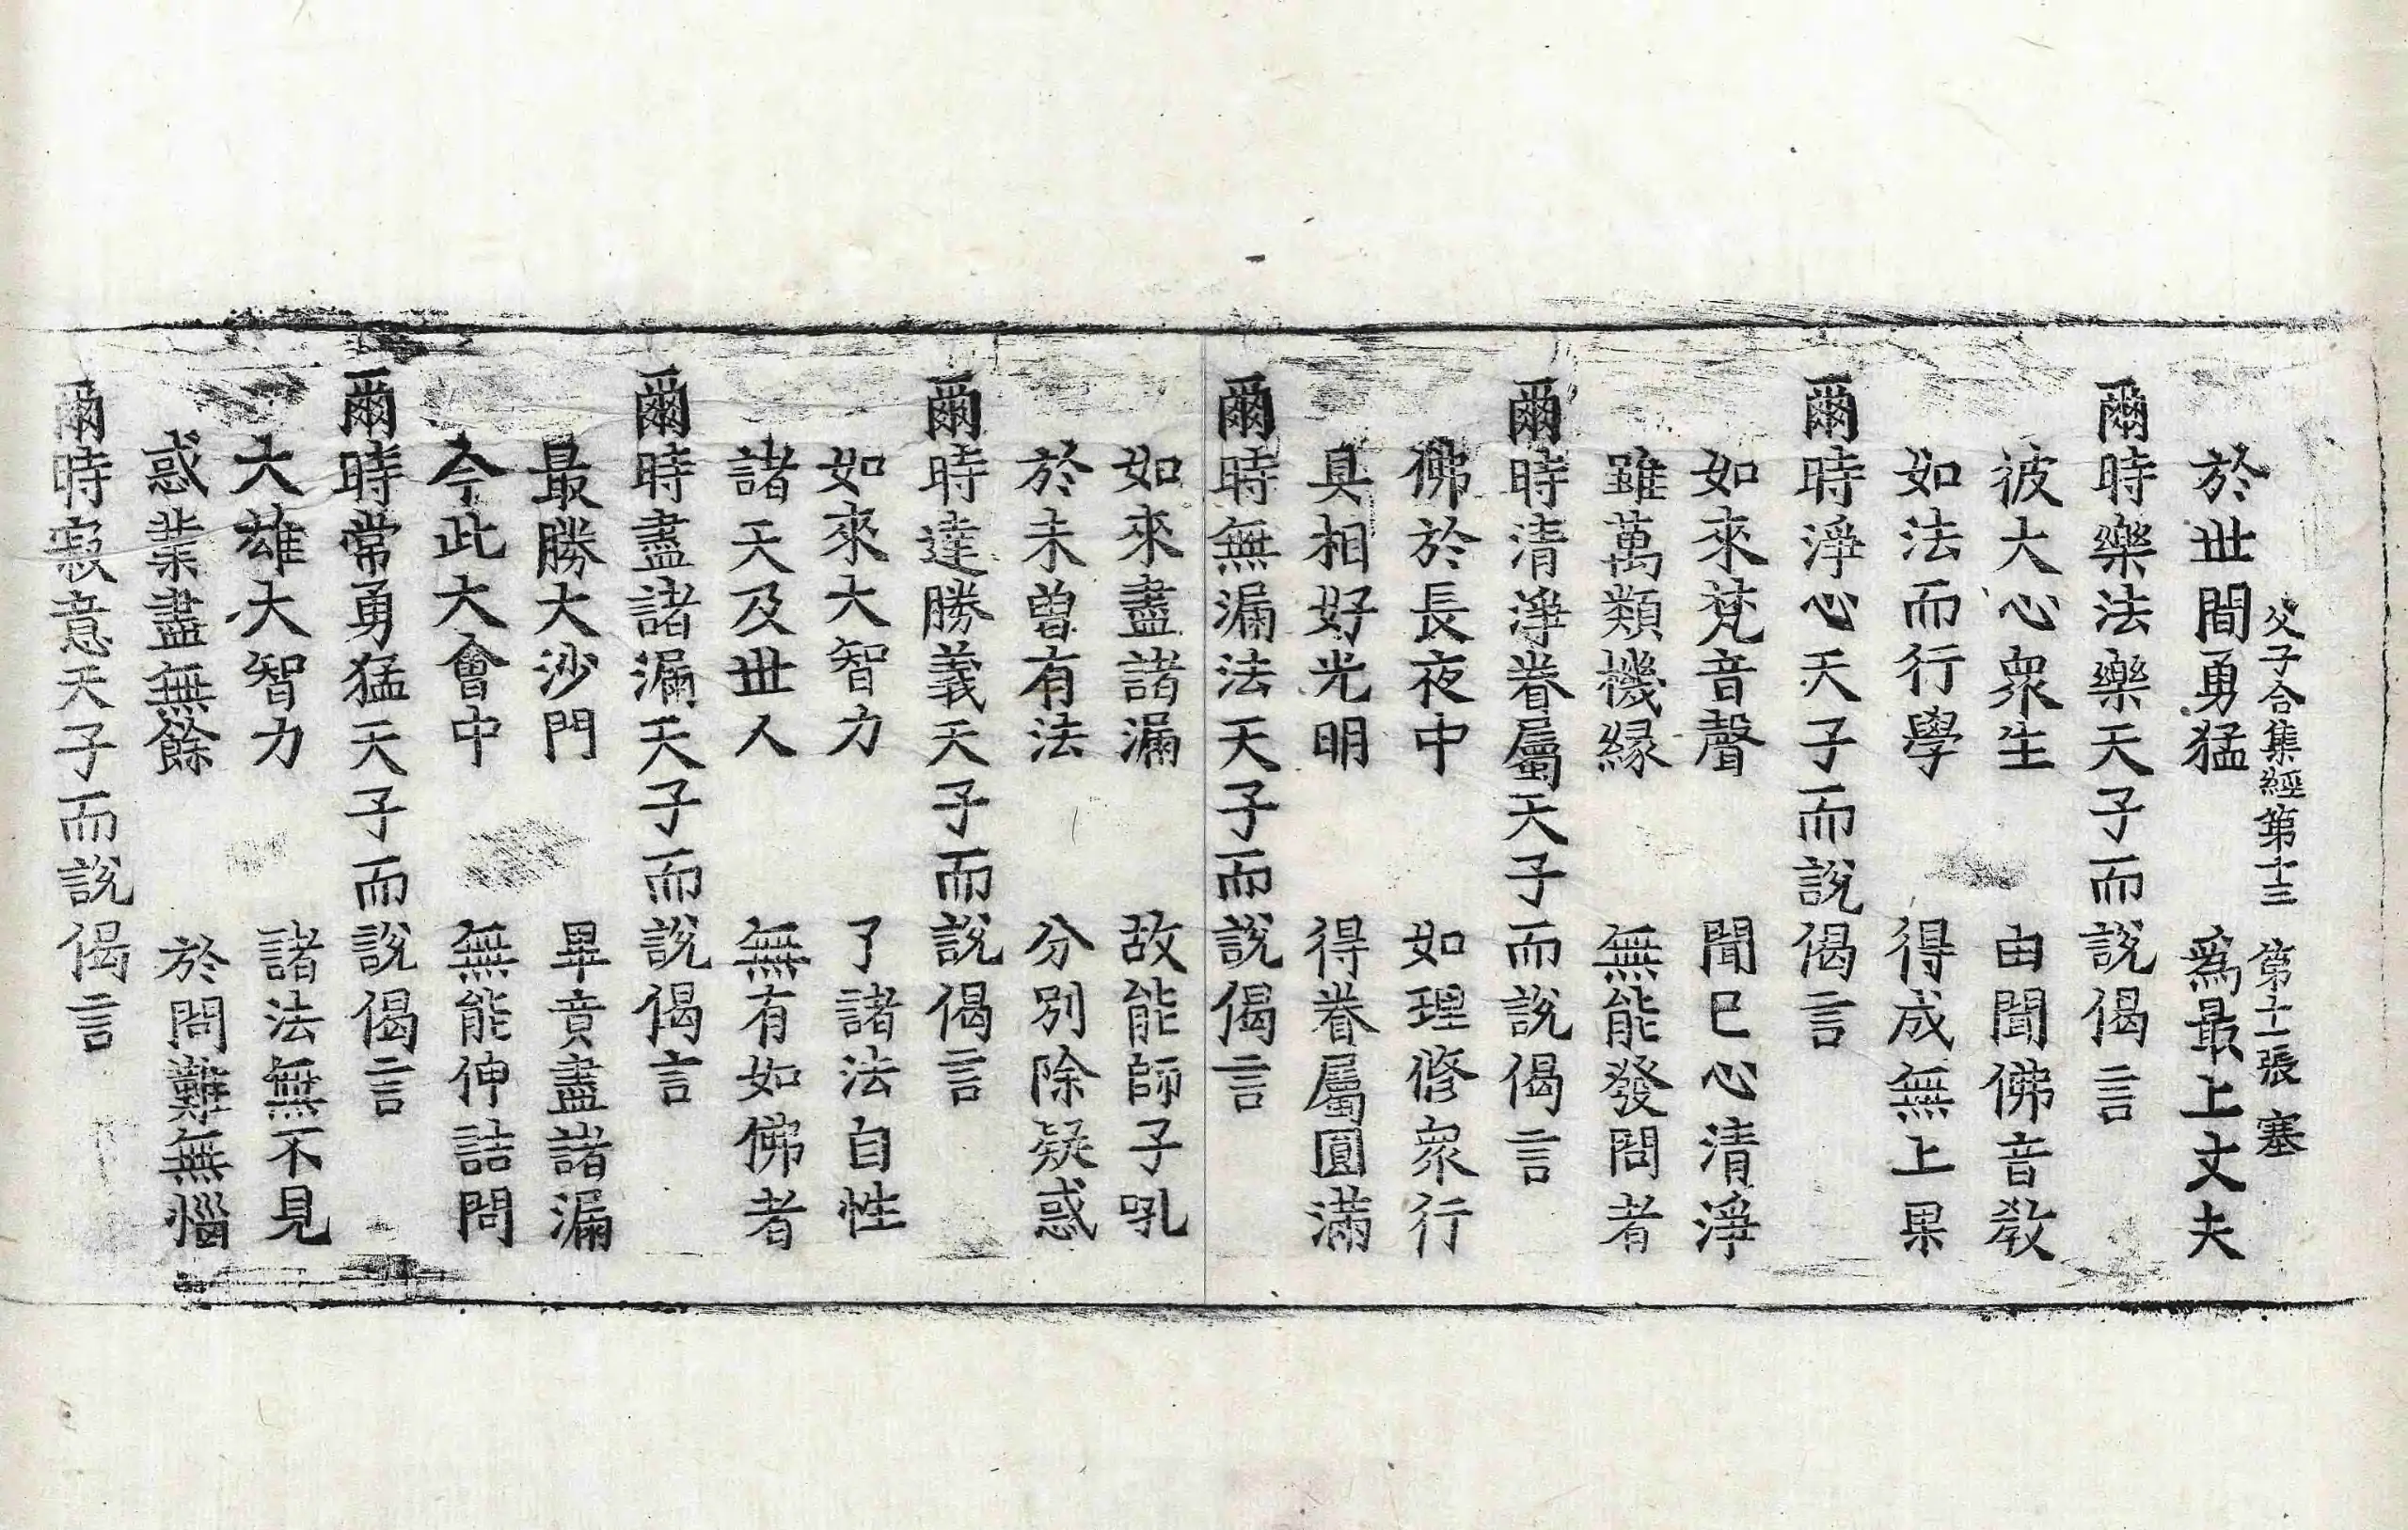 父子合集經第十三　第十一張　塞
於世間勇猛　爲最上丈夫
爾時樂法樂天子而說偈言
彼大心衆生　由聞佛音教
如法而行學　得成無上果
爾時淨心天子而說偈言
如來梵音聲　聞已心清淨
雖萬類機緣　無能發問者
爾時清淨眷屬天子而說偈言
佛於長夜中　如理修衆行
具相好光明　得眷屬圓滿
爾時無漏法天子而說偈言
如來盡諸漏　故能師子吼
於未曾有法　分別除疑惑
爾時達勝義天子而說偈言
如來大智力　了諸法自性
諸天及世人　無有如佛者
爾時盡諸漏天子而說偈言
最勝大沙門　畢竟盡諸漏
今此大會中　無能伸詰問
爾時常勇猛天子而說偈言
大雄大智力　諸法無不見
惑業盡無餘　於問難無惱
爾時寂意天子而說偈言